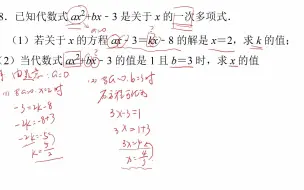 8. 已知代数式 ax²+bx-3 是关于 x 的一次多项式.
a=0
(1) 若关于 x 的方程 ax-3=kx-8 的解是 x=2, 求 k 的值;
(2) 当代数式 ax²+bx-3 的值是 1 且 b=3 时, 求 x 的值
a=0
当a=0. x=2时
-3=2k-8
-2k=-8+3
-2k=-5
k=5/2
当a=0. b=3时
3x-3=1
3x=1+3
3x=4
x=4/3